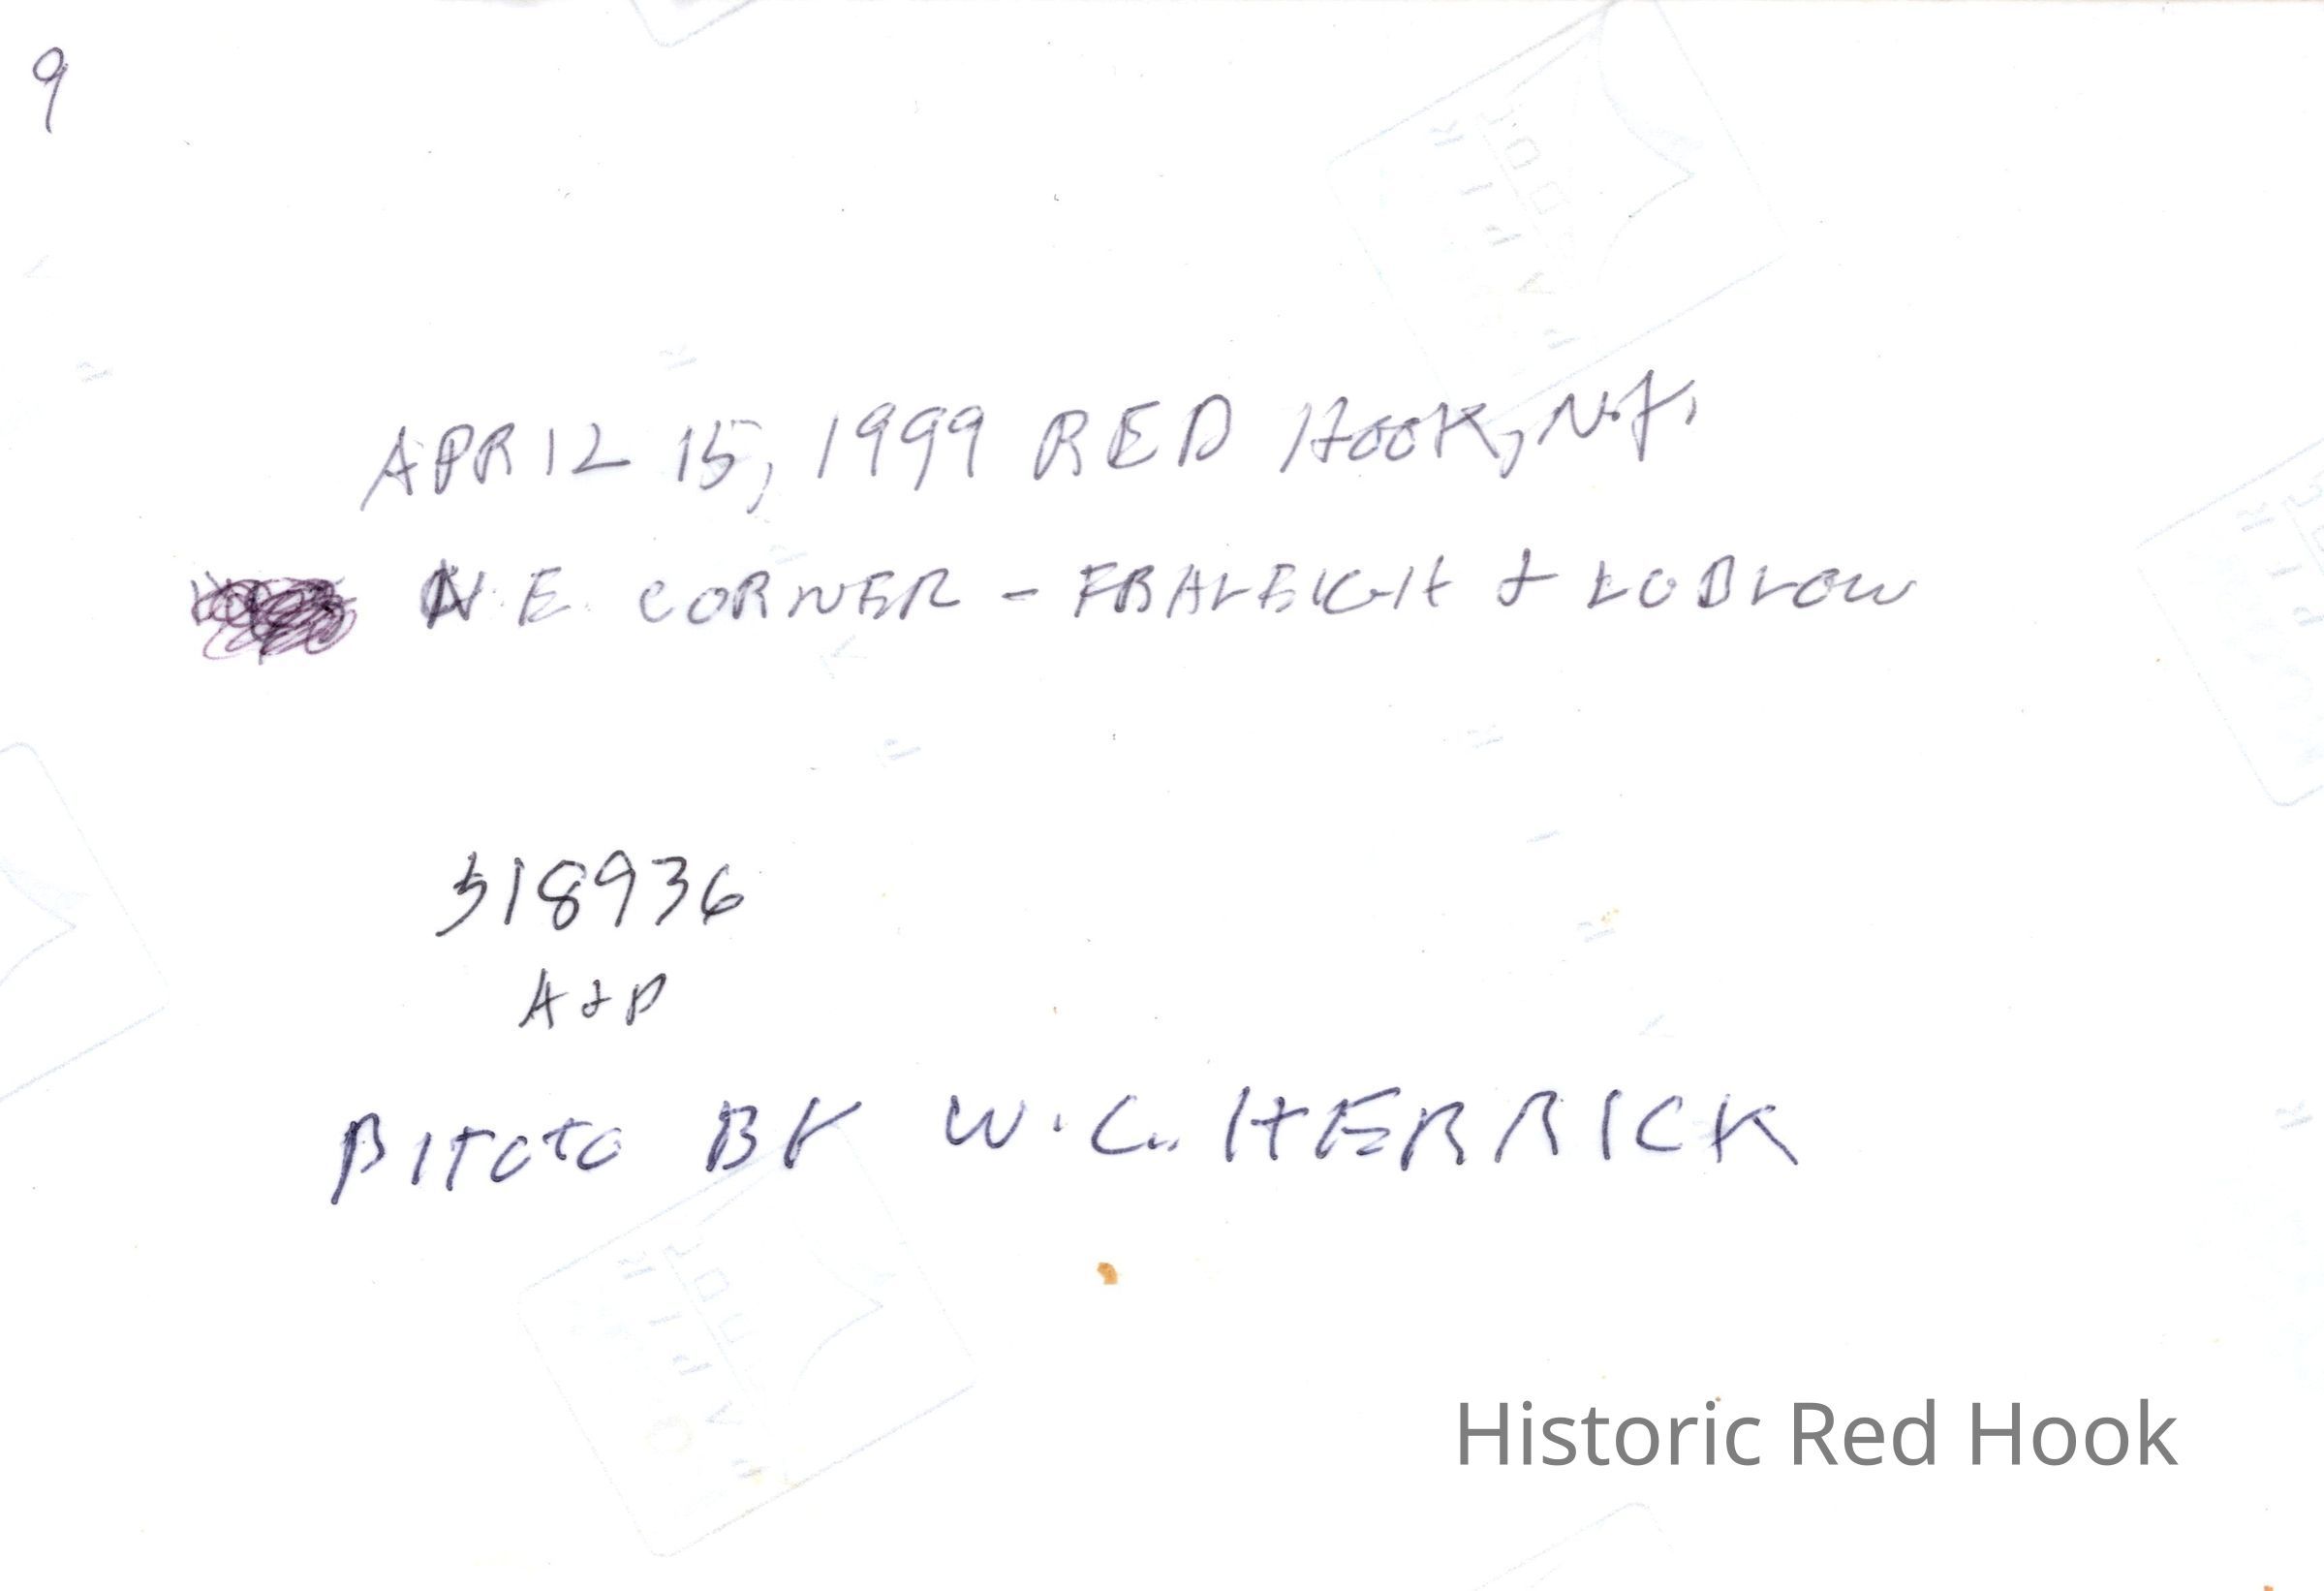 9
APRIL 15, 1999 RED HOOK, N.Y.
N.E. CORNER - FRALEIGH & LUDLOW
518936
A & P
PHOTO BY W.C. HERRICK
Historic Red Hook